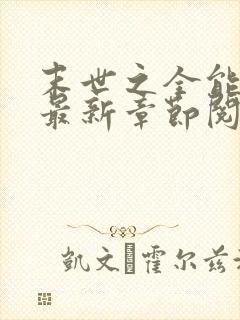 末世之全能
最新章节阅
凯文·霍尔兹